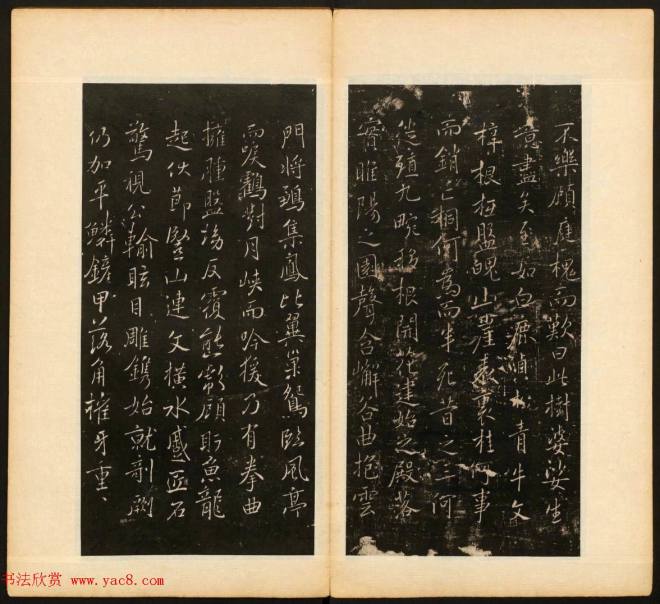 不樂顧庭槐而歎曰此樹婆娑生
意盡矣至如白鹿貞松青牛文
梓根柢盤魄山崖表裏桂何事
而銷亡桐何為而半死昔之三河
徙殖九畹移根開花建始之殿落
實睢陽之園聲含嶰谷曲抱雲
門將鵄集鳳比翼巢鴛臨風亭
而唳鶴對月峽而吟猨乃有拳曲
擁腫盤坳反覆熊彪顧盼魚龍
起伏節豎山連文橫水蹙匠石
驚視公輸眩目雕鐫始就剞劂
仍加平鱗鏟甲落角摧牙重〻
书法欣赏 www.yac8.com